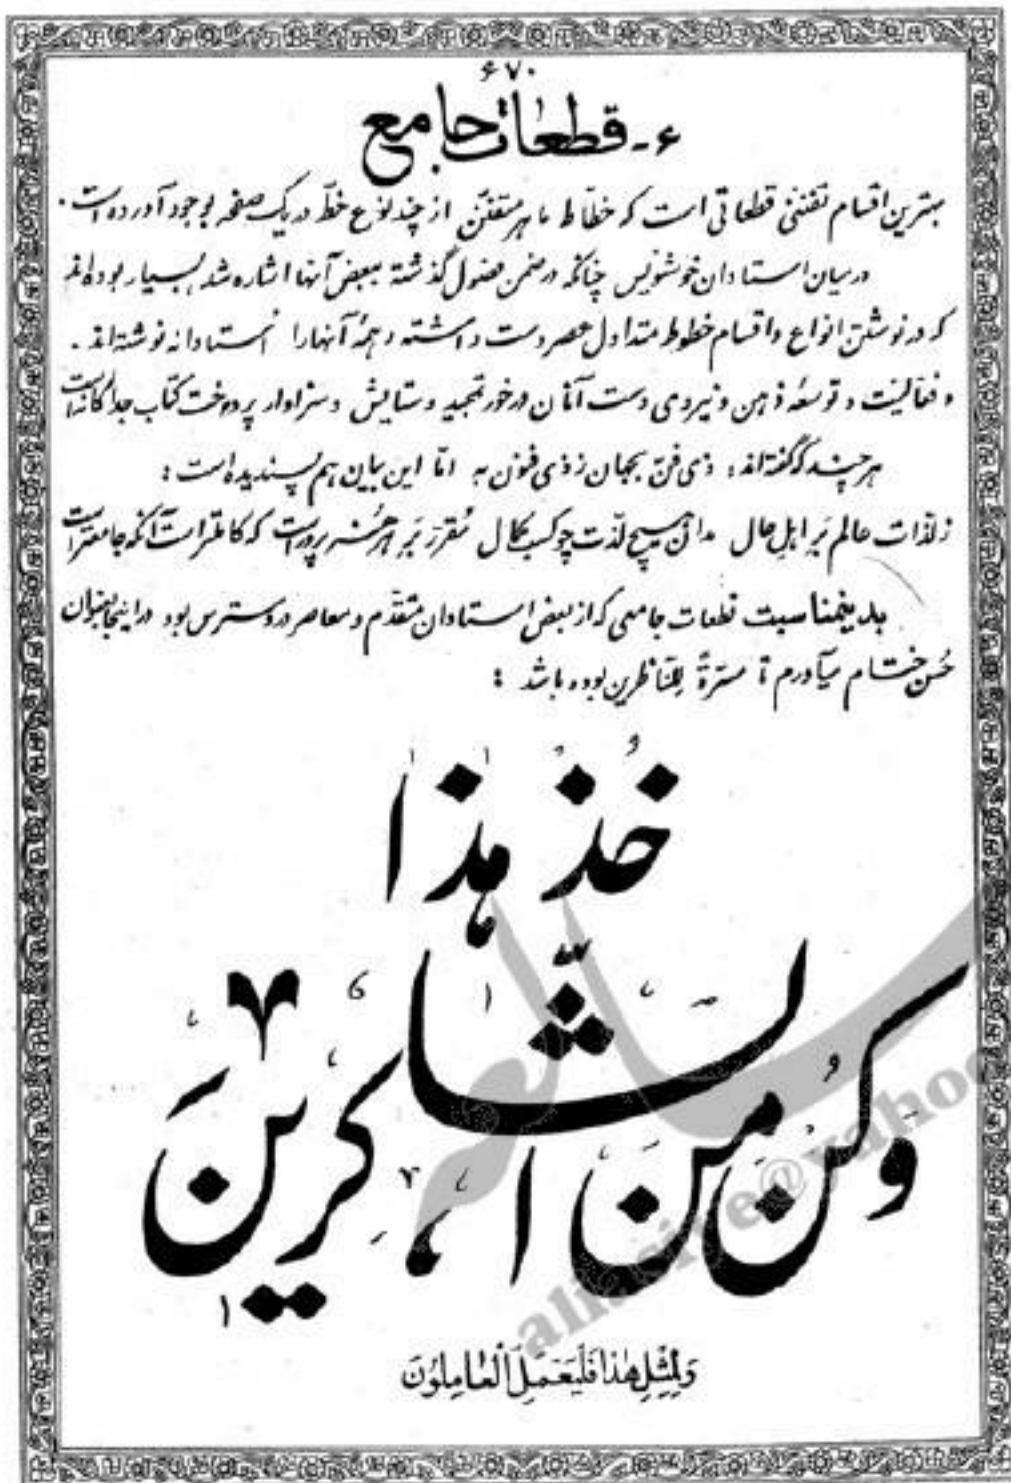 ۶۷۰
۶- قطعات جامع
بهترین اقسام تفننی قطعاتی است که خطّاط ماهر متفنّن از چند نوع خطّ در یک صفحه بوجود آورده است.
در بیان استادان خوشنویس چنانکه در ضمن فصول گذشته ببعض آنها اشاره شد بسیار بوده‌اند
که در نوشتن انواع و اقسام خطوط متداول عصر دست داشته و همهٔ آنها را استادانه نوشته‌اند.
و فعّالیّت و توسعهٔ ذهن و نیروی دست آنان در خور تمجید و ستایش و سزاوار پرداخت کتاب جداگانه‌است
هر چند که گفته‌اند: ذی فنّ بجهان ز ذی فنون به امّا این بیان هم پسندیده است:
ز لذّات عالم بَرِ اهل حال مدان هیچ لذّت چو کسب کمال مُقرّر بَرِ هر هنرپرور است که کاملتر است آنکه جامعتر است
بدینمناسبت قطعات جامعی که از بعض استادان متقدّم و معاصر در دسترس بود در اینجا بعنوان
حُسن ختام میآورم تا مسرّةً للنّاظرین بوده باشد:
خُذْ هٰذا
وَكُنْ مِنَ الشّاكِرینَ
وَلِمِثْلِ هٰذا فَلْیَعْمَلِ الْعٰامِلُونَ